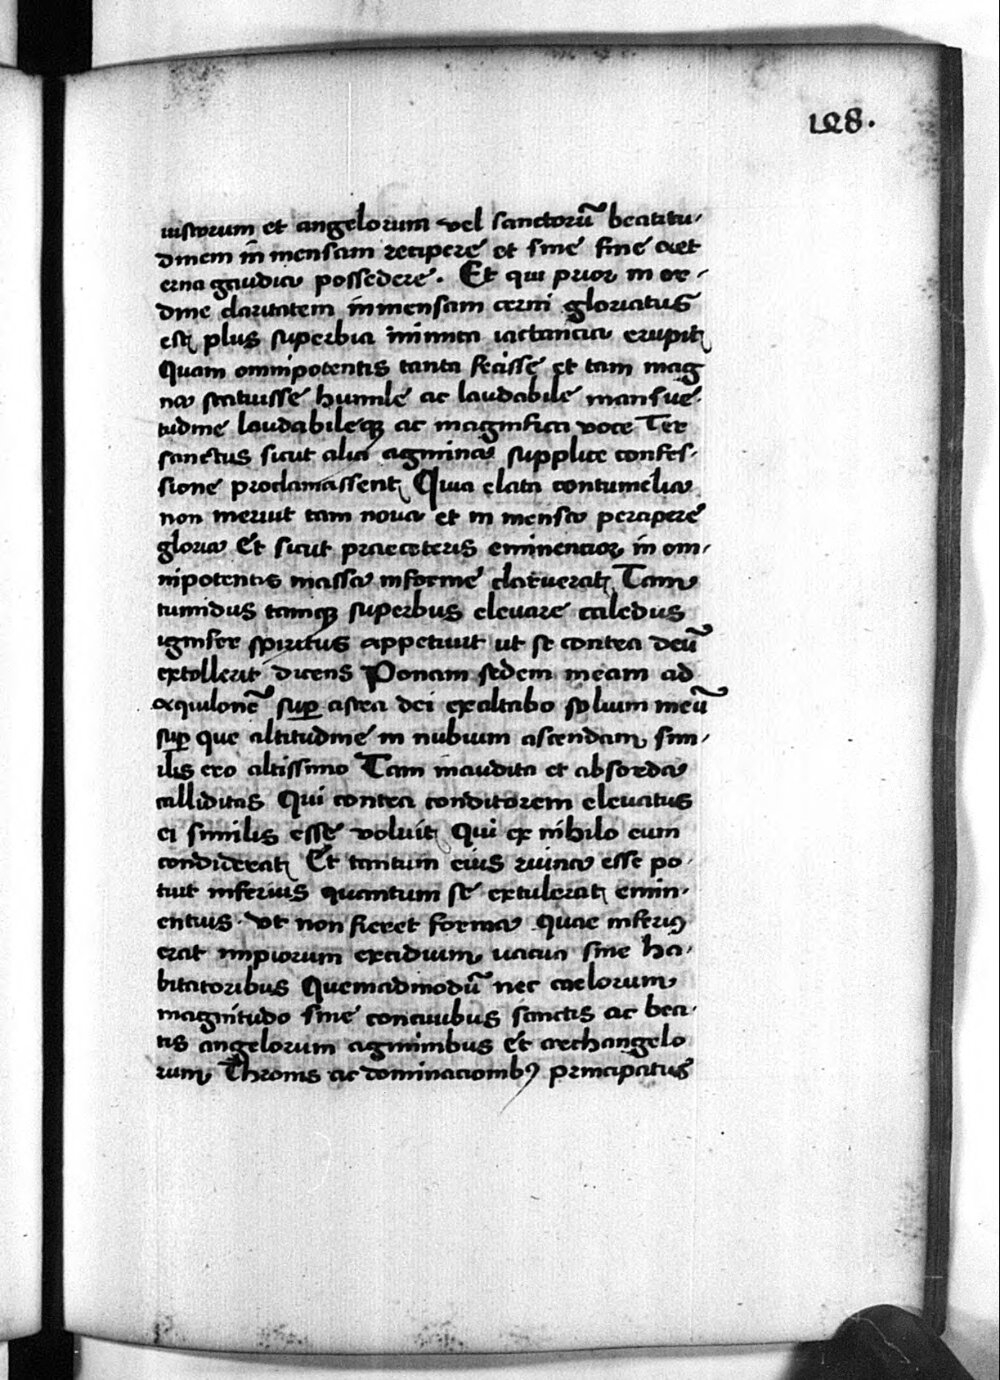 128.
iustorum et angelorum vel sanctorū beatitu-
dinem in mensam recipere et sine fine aet
erna gaudia possedere. Et qui prior in or-
dine claritatem inmensam cerni gloriatus
est plus superbia inimica iactancia erupit
Quam omnipotentis tanta fecisse et tam mag
na statuisse humile ac laudabile mansue-
tudine laudabileque ac magnifica voce Ter
sanctus sicut alia agmina supplice confes-
sione proclamassent Quia elata contumelia
non meruit tam nova et in mensa percipere
gloria Et sicut praeceteris eminencior in om-
nipotentis massa informe claruerat Tam
tumidus tamque superbus elevare caledus
ignifer spiritus appetiuit ut se contra deū
extollerit dicens Ponam sedem meam ad
aquilonē sup astra dei exaltabo solium meū
sup que altitudine in nubium ascendam, sim-
ilis ero altissimo Tam inaudita et absorda
calliditas Qui contra conditorem elevatus
ei similis esse voluit Qui ex nihilo eum
condiderat Et tantum eius ruina esse po-
tuit inferius quantum se extulerat emin-
entius. Ut non fieret forma quae inferius
erat impiorum excidium, uacua sine ha-
bitatoribus Quemadmodū nec caelorum
magnitudo sine concivibus sanctis ac bea-
tis angelorum agminibus Et archangelo
rum, Thronis ac dominacionibus principatus